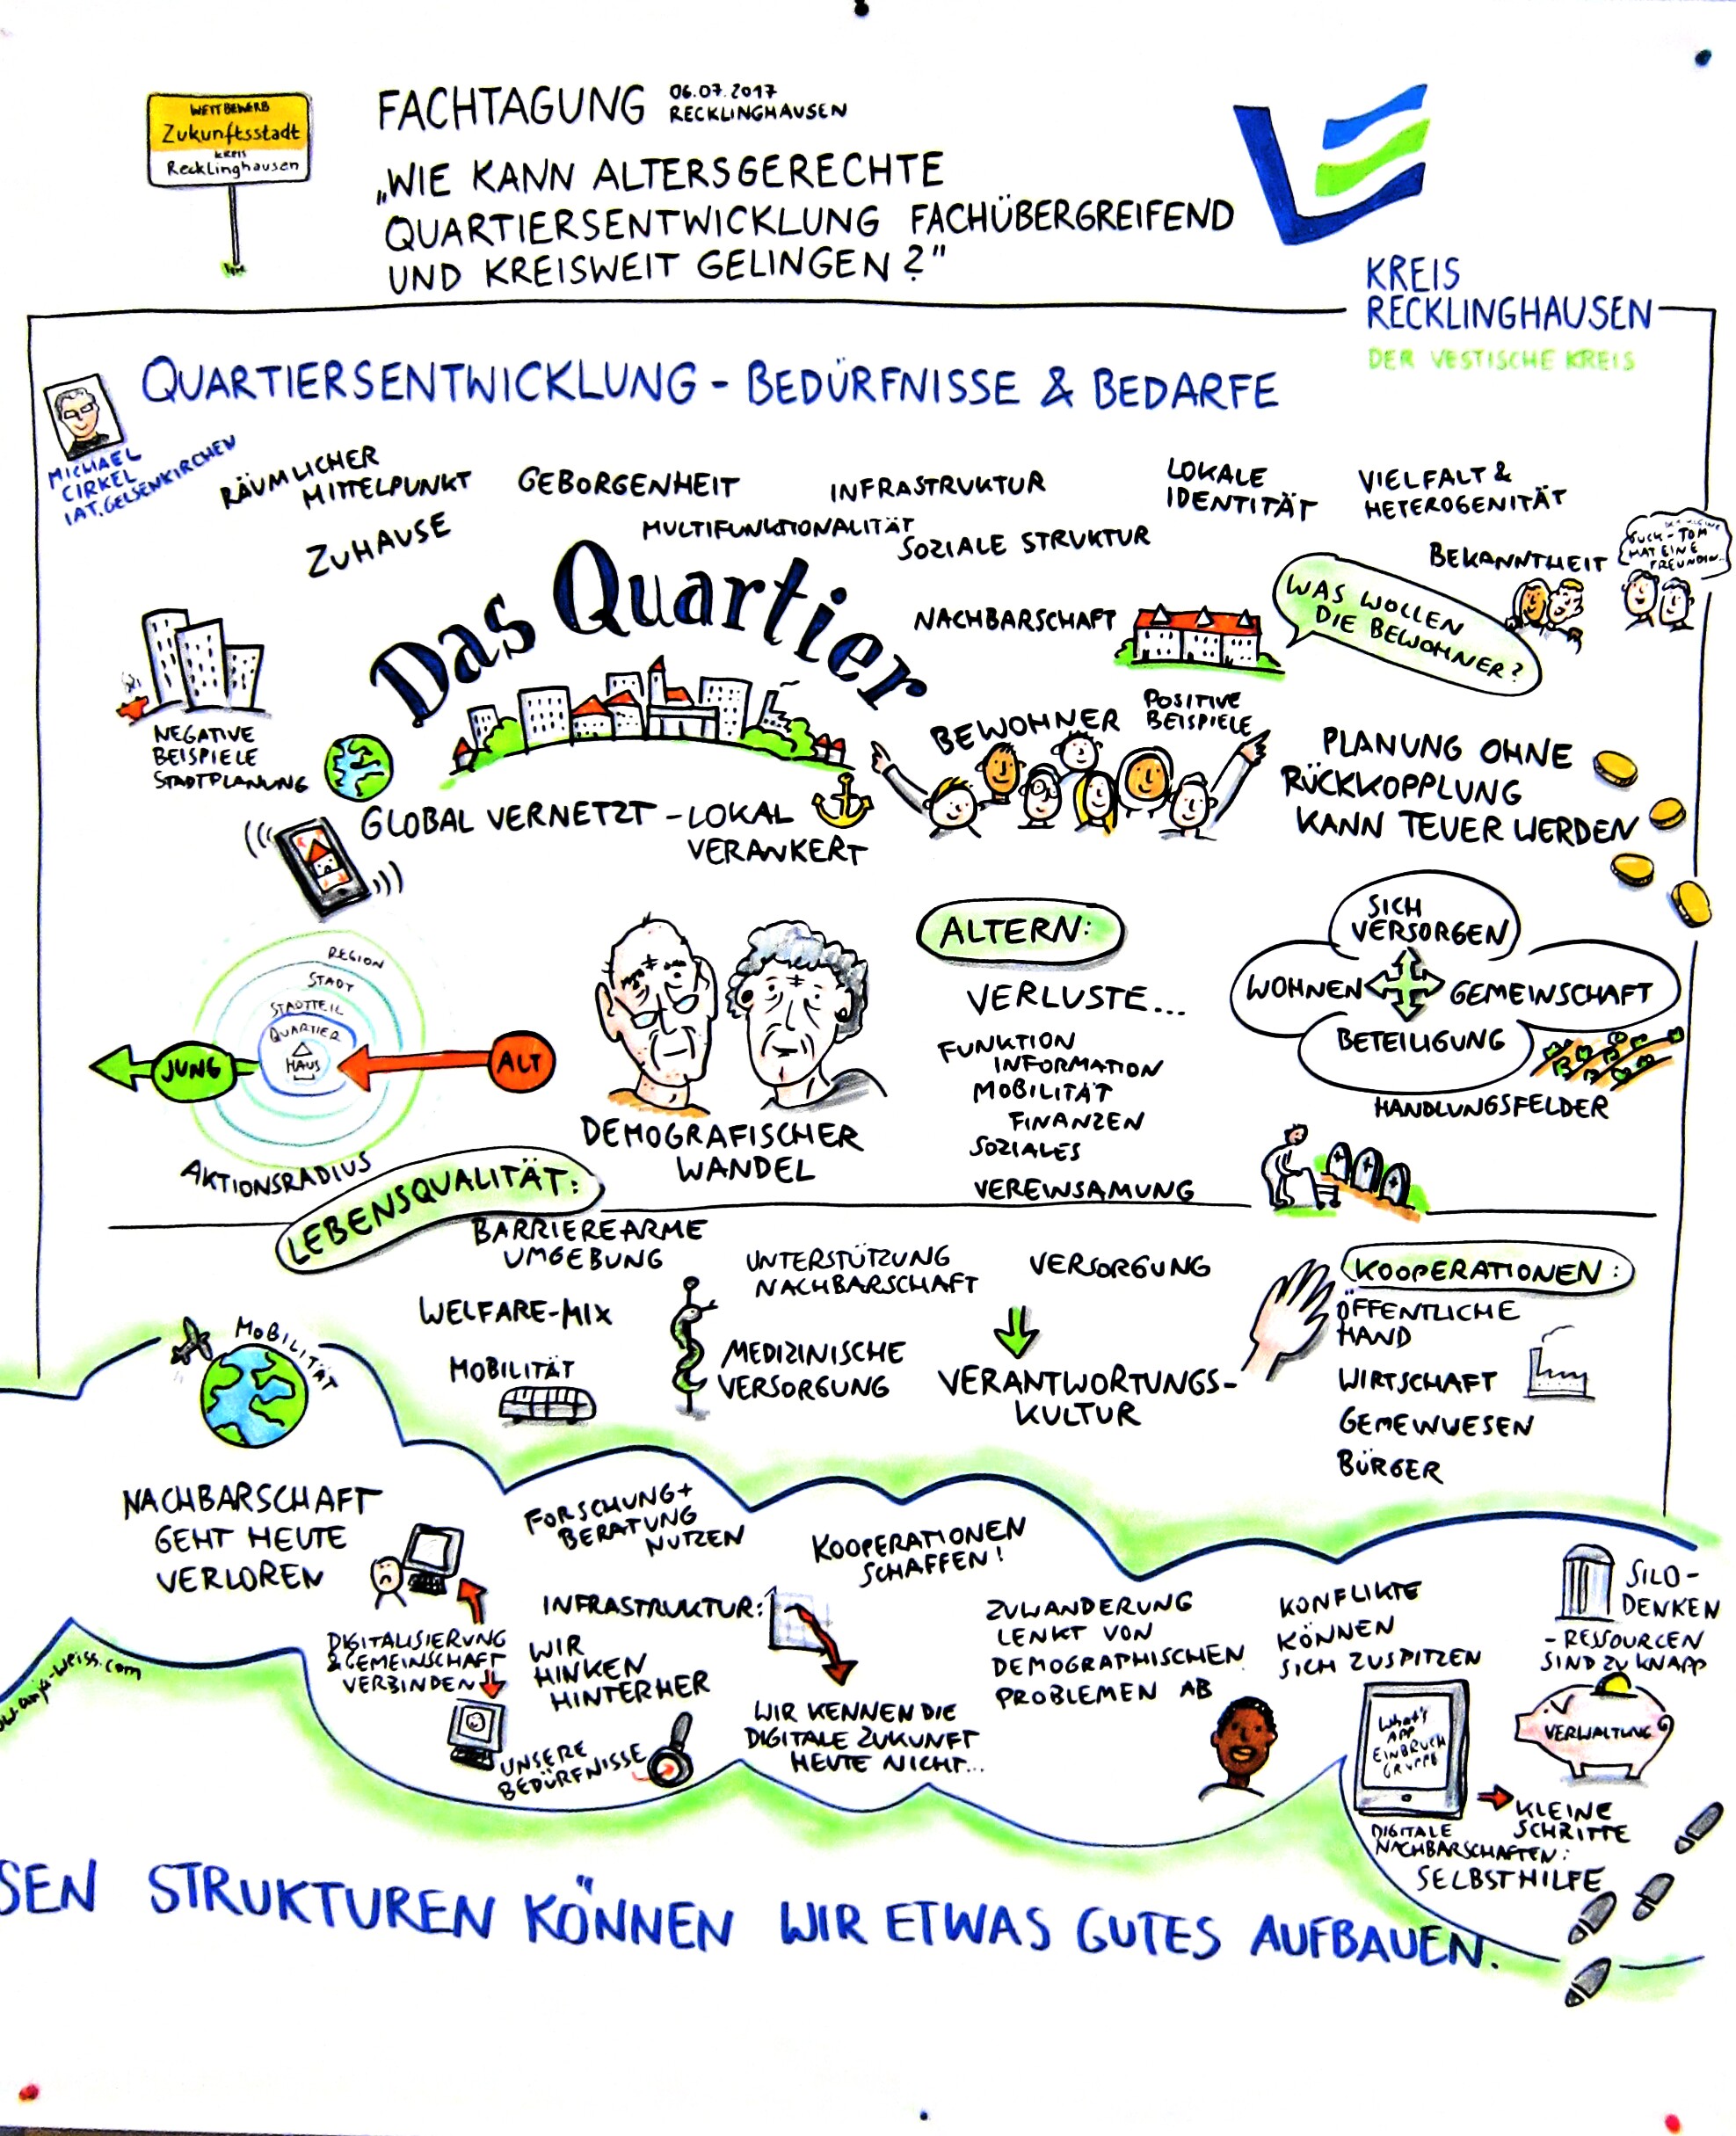 WETTBEWERB
Zukunftsstadt
KREIS
Recklinghausen
FACHTAGUNG 06.07.2017
RECKLINGHAUSEN
„WIE KANN ALTERSGERECHTE
QUARTIERSENTWICKLUNG FACHÜBERGREIFEND
UND KREISWEIT GELINGEN?"
KREIS
RECKLINGHAUSEN
DER VESTISCHE KREIS
QUARTIERSENTWICKLUNG - BEDÜRFNISSE & BEDARFE
MICHAEL
CIRKEL
IAT. GELSENKIRCHEN
RÄUMLICHER
MITTELPUNKT
ZUHAUSE
GEBORGENHEIT
MULTIFUNKTIONALITÄT
INFRASTRUKTUR
SOZIALE STRUKTUR
LOKALE
IDENTITÄT
VIELFALT &
HETEROGENITÄT
BEKANNTHEIT
GUCK - TOM
HAT EINE
FREUNDIN...
Das Quartier
NACHBARSCHAFT
WAS WOLLEN
DIE BEWOHNER?
NEGATIVE
BEISPIELE
STADTPLANUNG
BEWOHNER
POSITIVE
BEISPIELE
PLANUNG OHNE
RÜCKKOPPLUNG
KANN TEUER WERDEN
GLOBAL VERNETZT - LOKAL
VERANKERT
REGION
STADT
STADTTEIL
QUARTIER
HAUS
JUNG
ALT
AKTIONSRADIUS
DEMOGRAFISCHER
WANDEL
ALTERN:
VERLUSTE...
FUNKTION
INFORMATION
MOBILITÄT
FINANZEN
SOZIALES
VEREINSAMUNG
SICH
VERSORGEN
WOHNEN
GEMEINSCHAFT
BETEILIGUNG
HANDLUNGSFELDER
LEBENSQUALITÄT:
BARRIEREARME
UMGEBUNG
WELFARE-MIX
MOBILITÄT
UNTERSTÜTZUNG
NACHBARSCHAFT
MEDIZINISCHE
VERSORGUNG
VERSORGUNG
VERANTWORTUNGS-
KULTUR
KOOPERATIONEN:
ÖFFENTLICHE
HAND
WIRTSCHAFT
GEMEINWESEN
BÜRGER
MOBILITÄT
NACHBARSCHAFT
GEHT HEUTE
VERLOREN
DIGITALISIERUNG
& GEMEINSCHAFT
VERBINDEN
FORSCHUNG+
BERATUNG
NUTZEN
INFRASTRUKTUR:
WIR
HINKEN
HINTERHER
UNSERE
BEDÜRFNISSE
KOOPERATIONEN
SCHAFFEN!
WIR KENNEN DIE
DIGITALE ZUKUNFT
HEUTE NICHT...
ZUWANDERUNG
LENKT VON
DEMOGRAPHISCHEN
PROBLEMEN AB
KONFLIKTE
KÖNNEN
SICH ZUSPITZEN
SILO-
DENKEN
- RESSOURCEN
SIND ZU KNAPP
VERWALTUNG
What's
APP
EINBRUCH
GRUPPE
KLEINE
SCHRITTE
DIGITALE
NACHBARSCHAFTEN:
SELBSTHILFE
w.anja-weiss.com
SEN STRUKTUREN KÖNNEN WIR ETWAS GUTES AUFBAUEN.